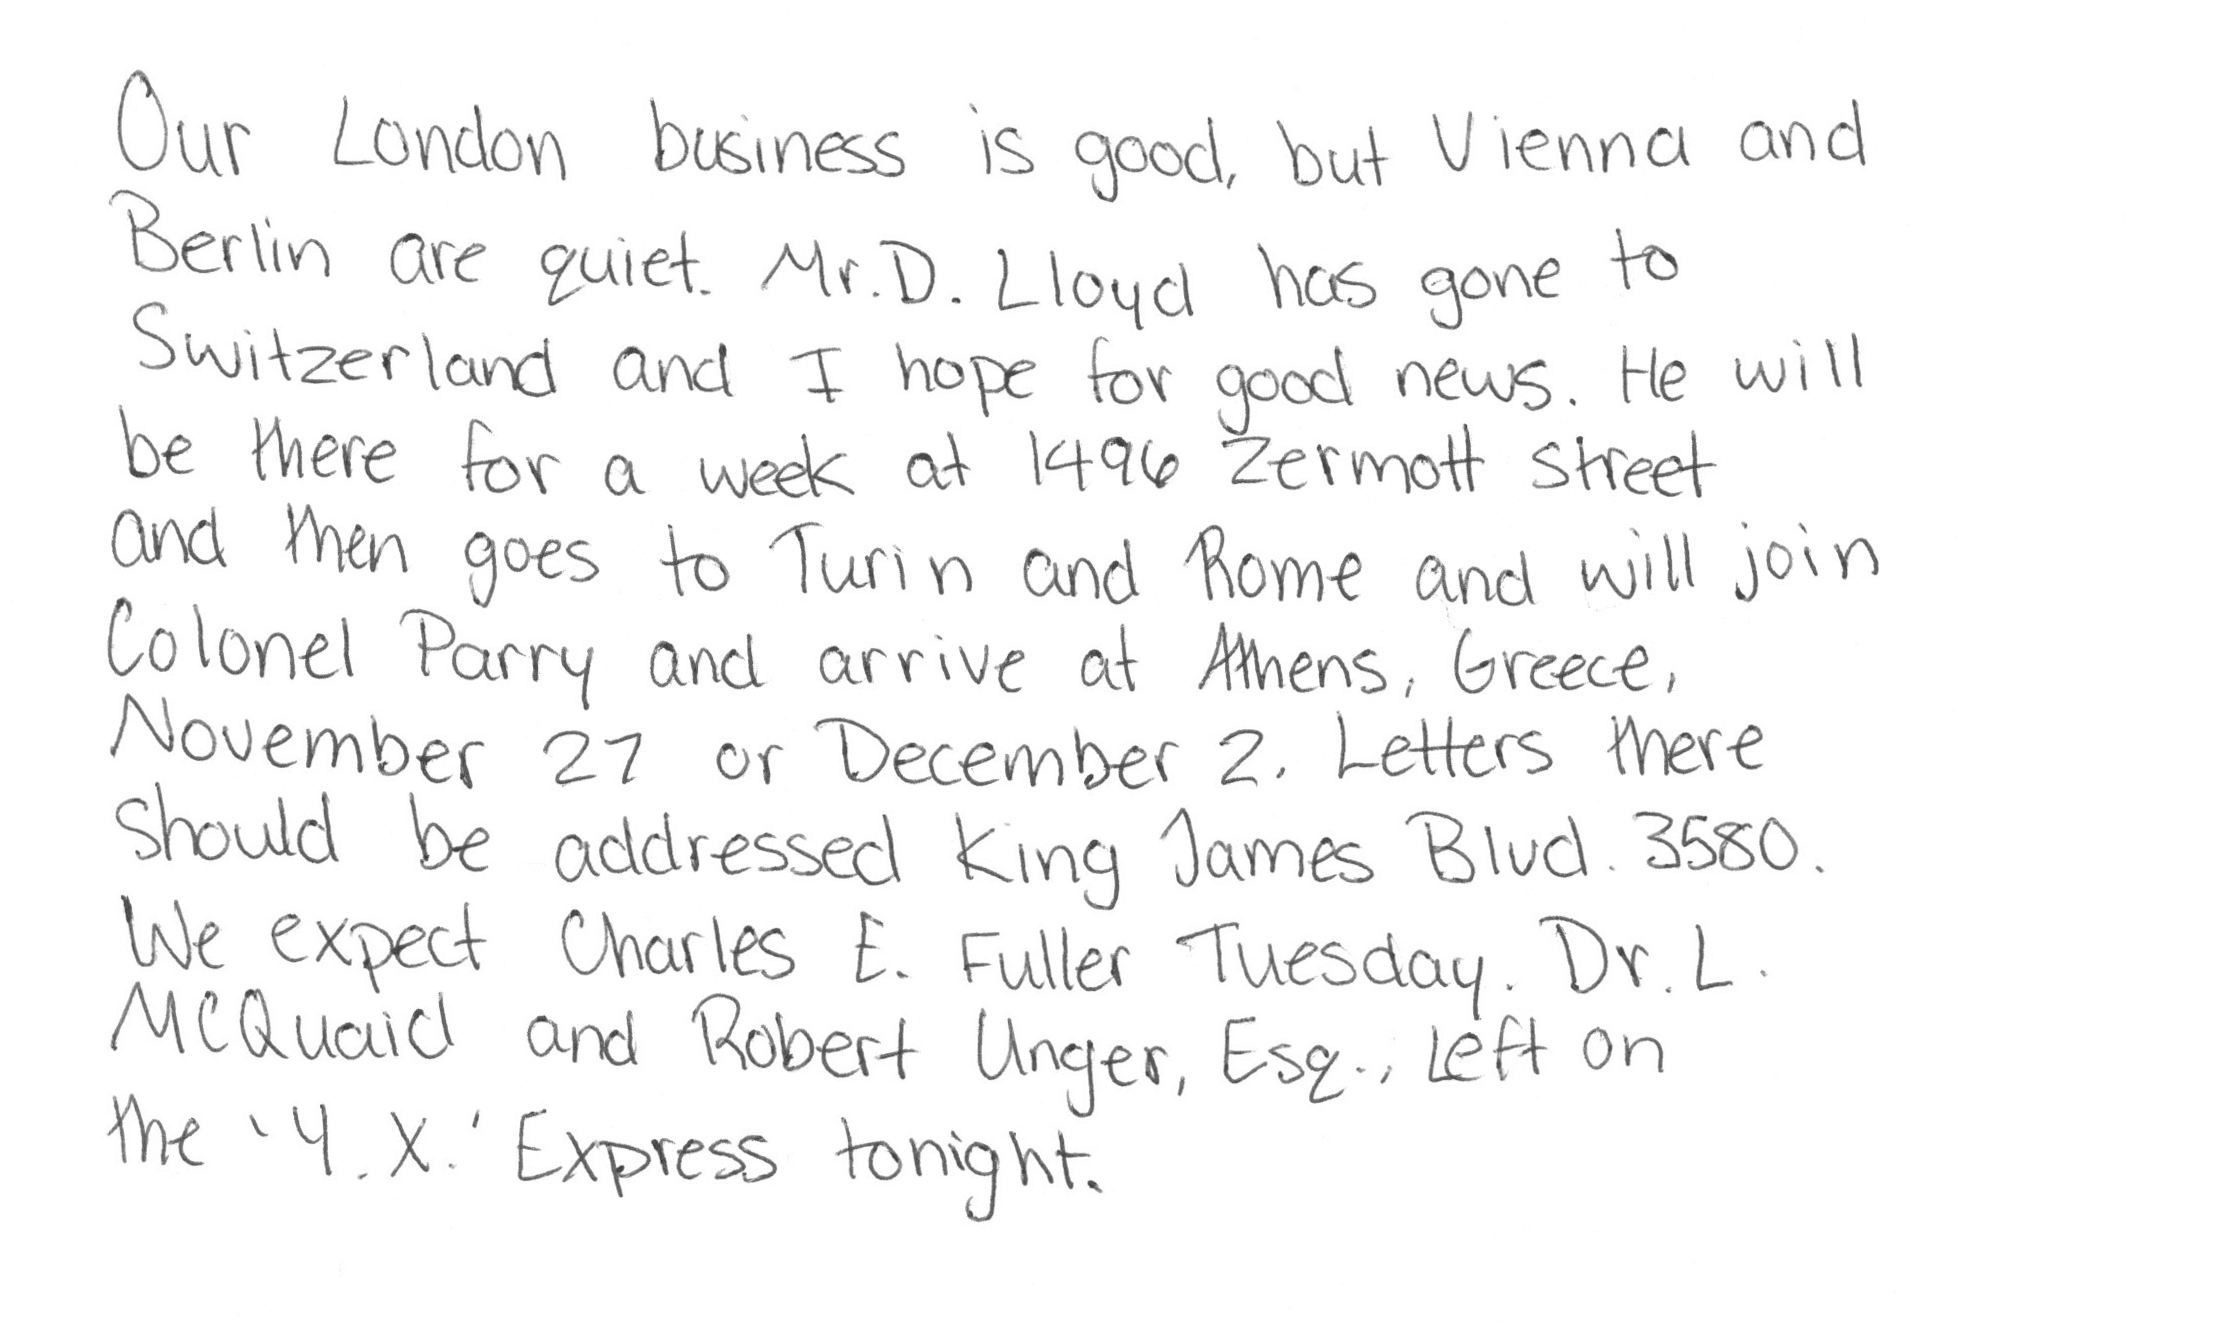 Our London business is good, but Vienna and
Berlin are quiet. Mr. D. Lloyd has gone to
Switzerland and I hope for good news. He will
be there for a week at 1496 Zermott street
and then goes to Turin and Rome and will join
Colonel Parry and arrive at Athens, Greece,
November 27 or December 2. Letters there
should be addressed King James Blvd. 3580.
We expect Charles E. Fuller Tuesday. Dr. L.
McQuaid and Robert Unger, Esq., left on
the 'Y. X.' Express tonight.